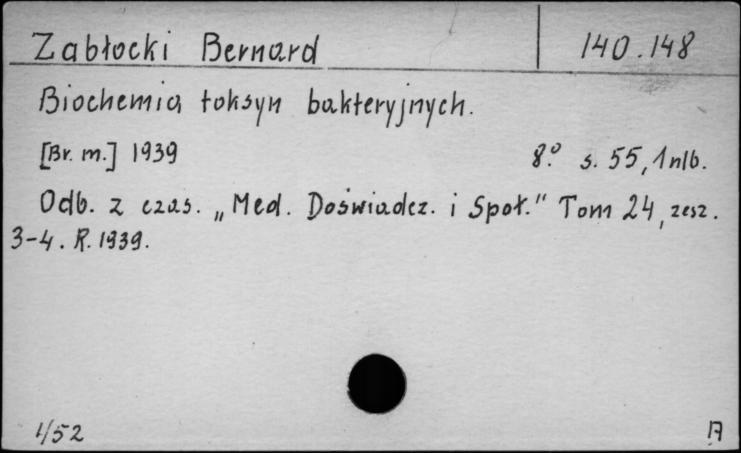 Zabłocki Bernard 140.148
Biochemia toksyn bakteryjnych.
[Br. m.] 1939 8.° s. 55, 1 nlb.
Odb. z czas. „Med. Doświadcz. i Społ." Tom 24, zesz.
3-4. R. 1939.
1/52 A